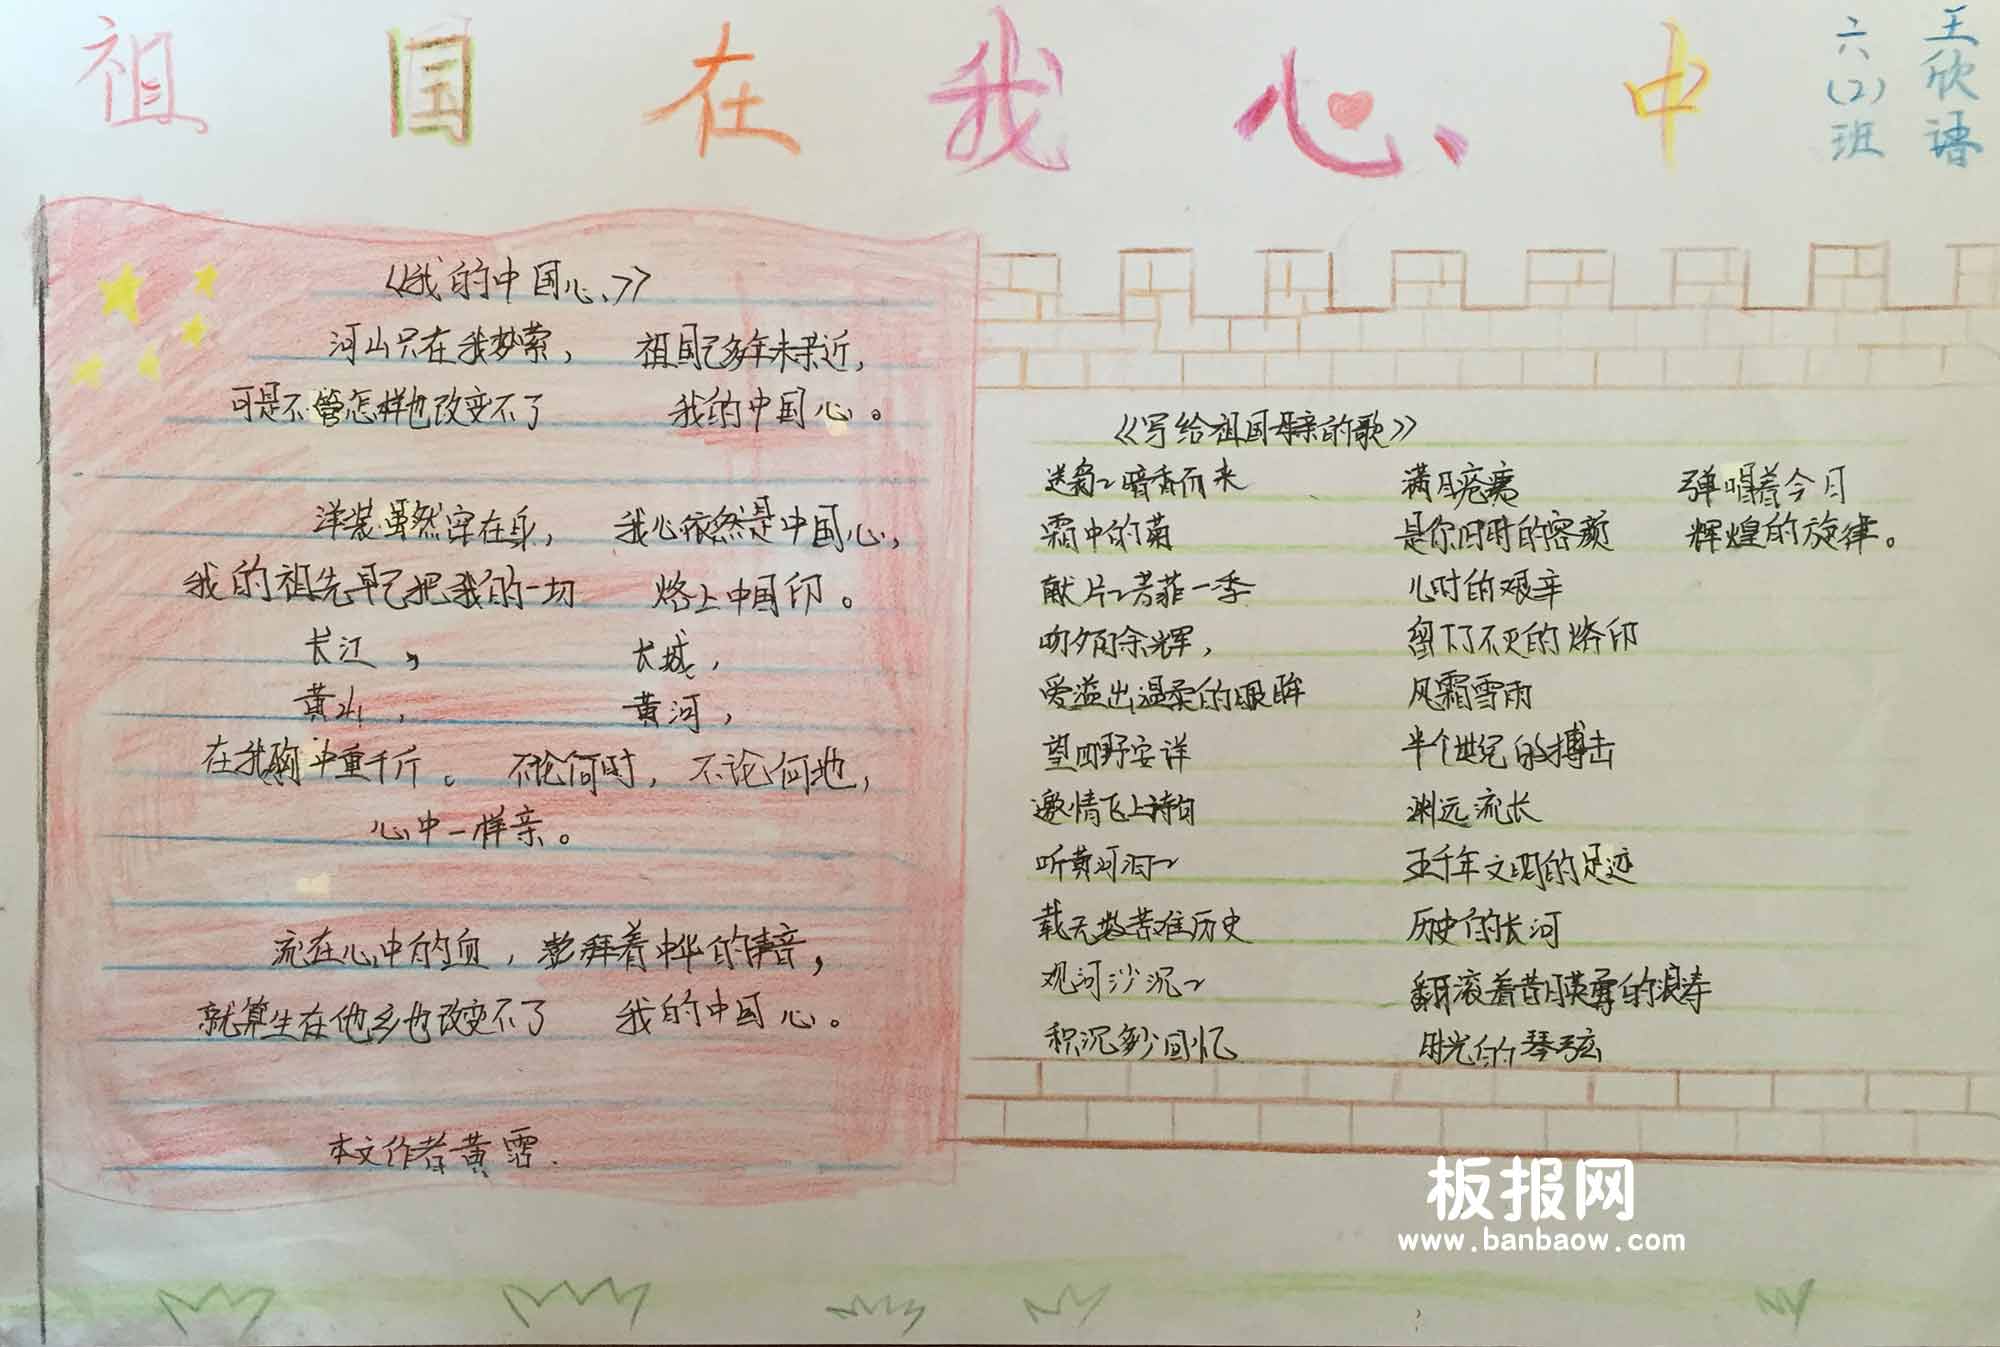 祖国在我心中
王欣语
六(2)班
《我的中国心》
河山只在我梦萦， 祖国已多年未亲近，
可是不管怎样也改变不了 我的中国心。
洋装虽然穿在身， 我心依然是中国心，
我的祖先早已把我的一切 烙上中国印。
长江， 长城，
黄山， 黄河，
在我胸中重千斤。 不论何时，不论何地，
心中一样亲。
流在心中的血，澎拜着中华的声音，
就算生在他乡也改变不了 我的中国心。
本文作者黄霑.
《写给祖国母亲的歌》
送匊〻暗香而来
霜中的菊
献片〻芳菲一季
吻夕阳余辉，
爱溢出温柔的眼眸
望田野安详
邀情飞上诗句
听黄河汩〻
载无数苦难历史
观河沙沉〻
积沉多少回忆
满目疮痍
是你旧时的容颜
儿时的艰辛
留下了不灭的烙印
风霜雪雨
半个世纪的搏击
渊远流长
五千年文明的足迹
历史的长河
翻滚着昔日英勇的浪涛
时光的琴弦
弹唱着今日
辉煌的旋律。
板报网
www.banbaow.com